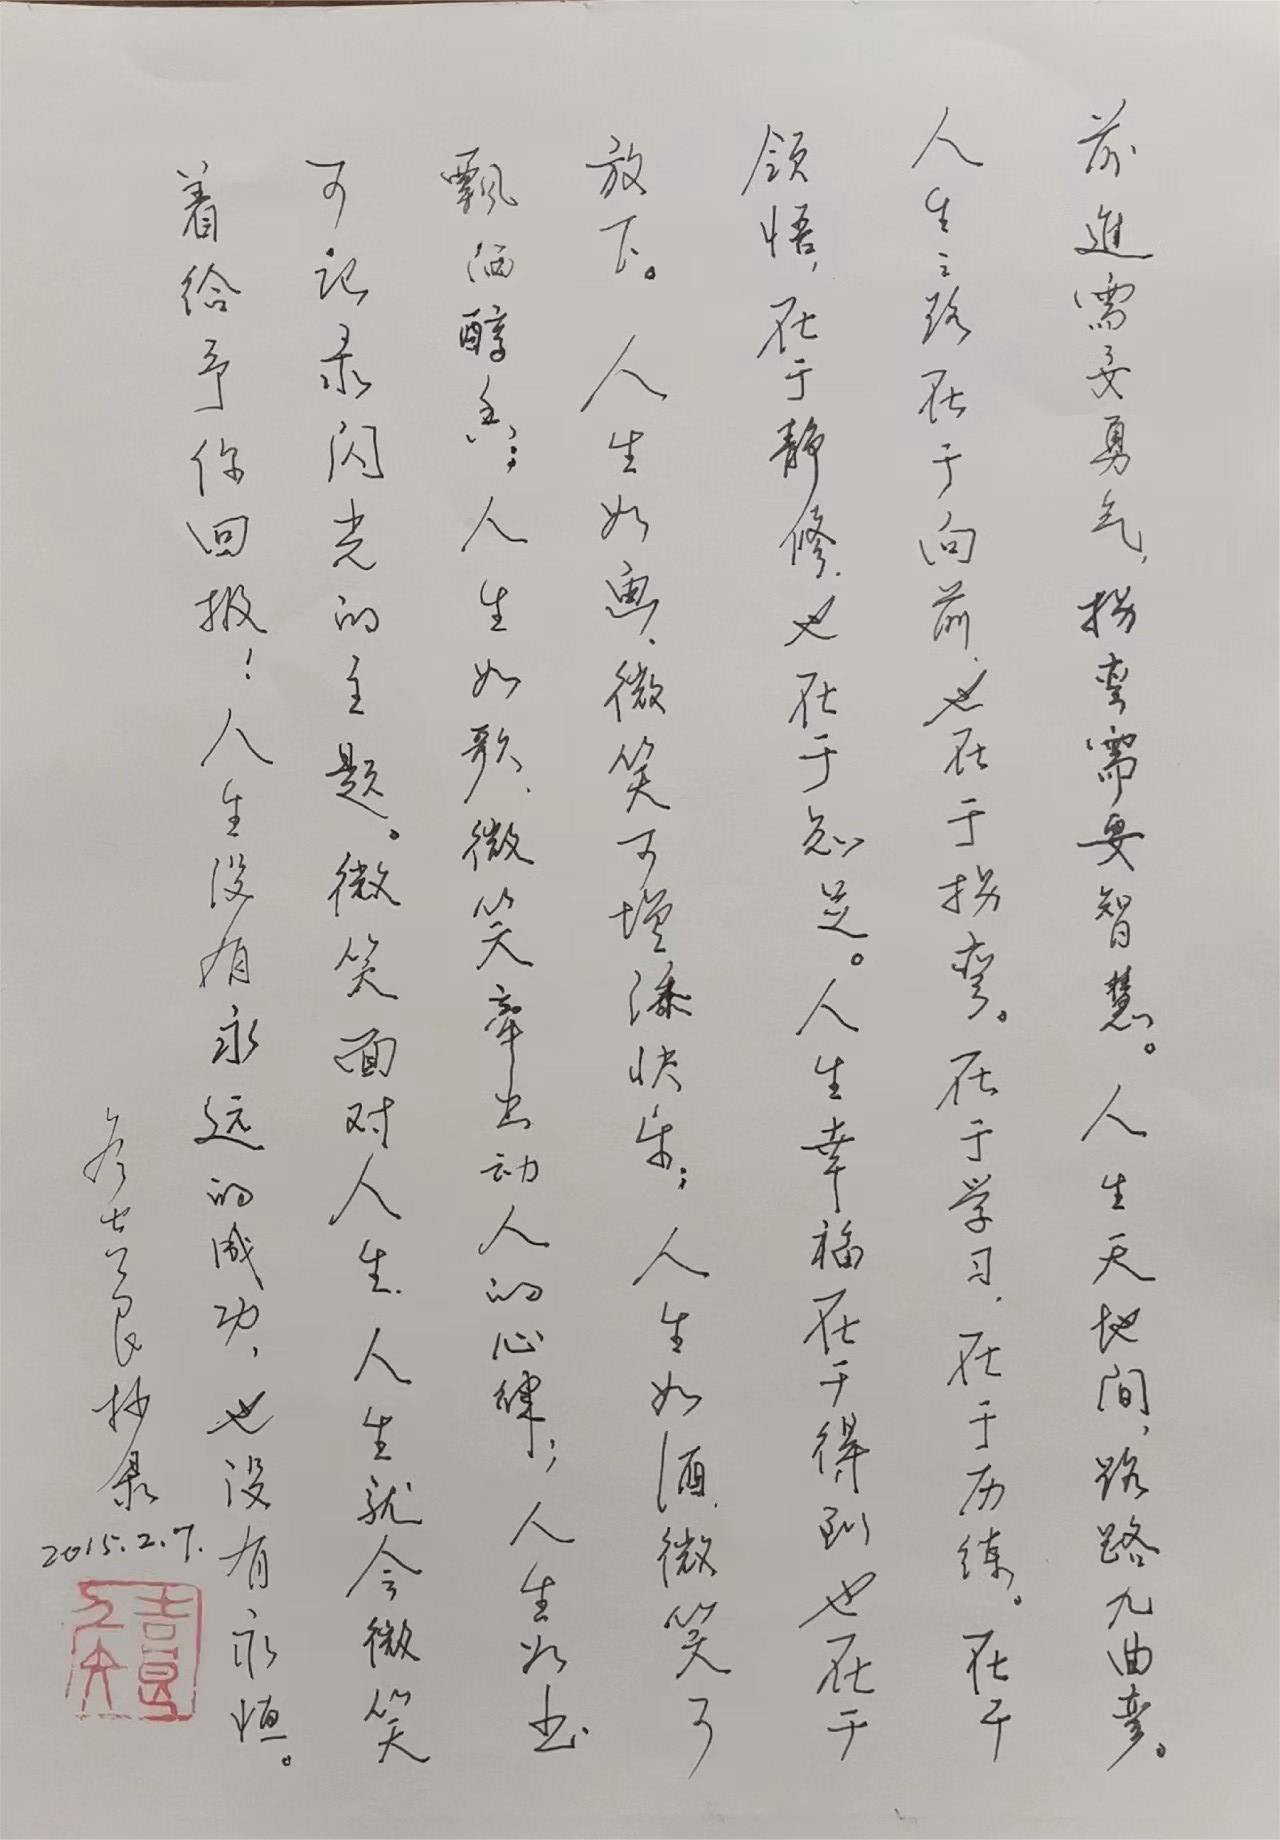 前進需要勇气，拐弯需要智慧。人生天地间，路路九曲弯。
人生之路在于向前，也在于拐弯。在于学习，在于历练。在于
领悟，在于静修，也在于知足。人生幸福在于得到，也在于
放下。人生如画，微笑可增添快乐；人生如酒，微笑可
飘洒醇香；人生如歌，微笑牵出动人的心律；人生如书
可记录闪光的主题。微笑面对人生，人生就会微笑
着给予你回报！人生没有永远的成功，也没有永恒。
吉良抄录
2015.2.7.
吉良